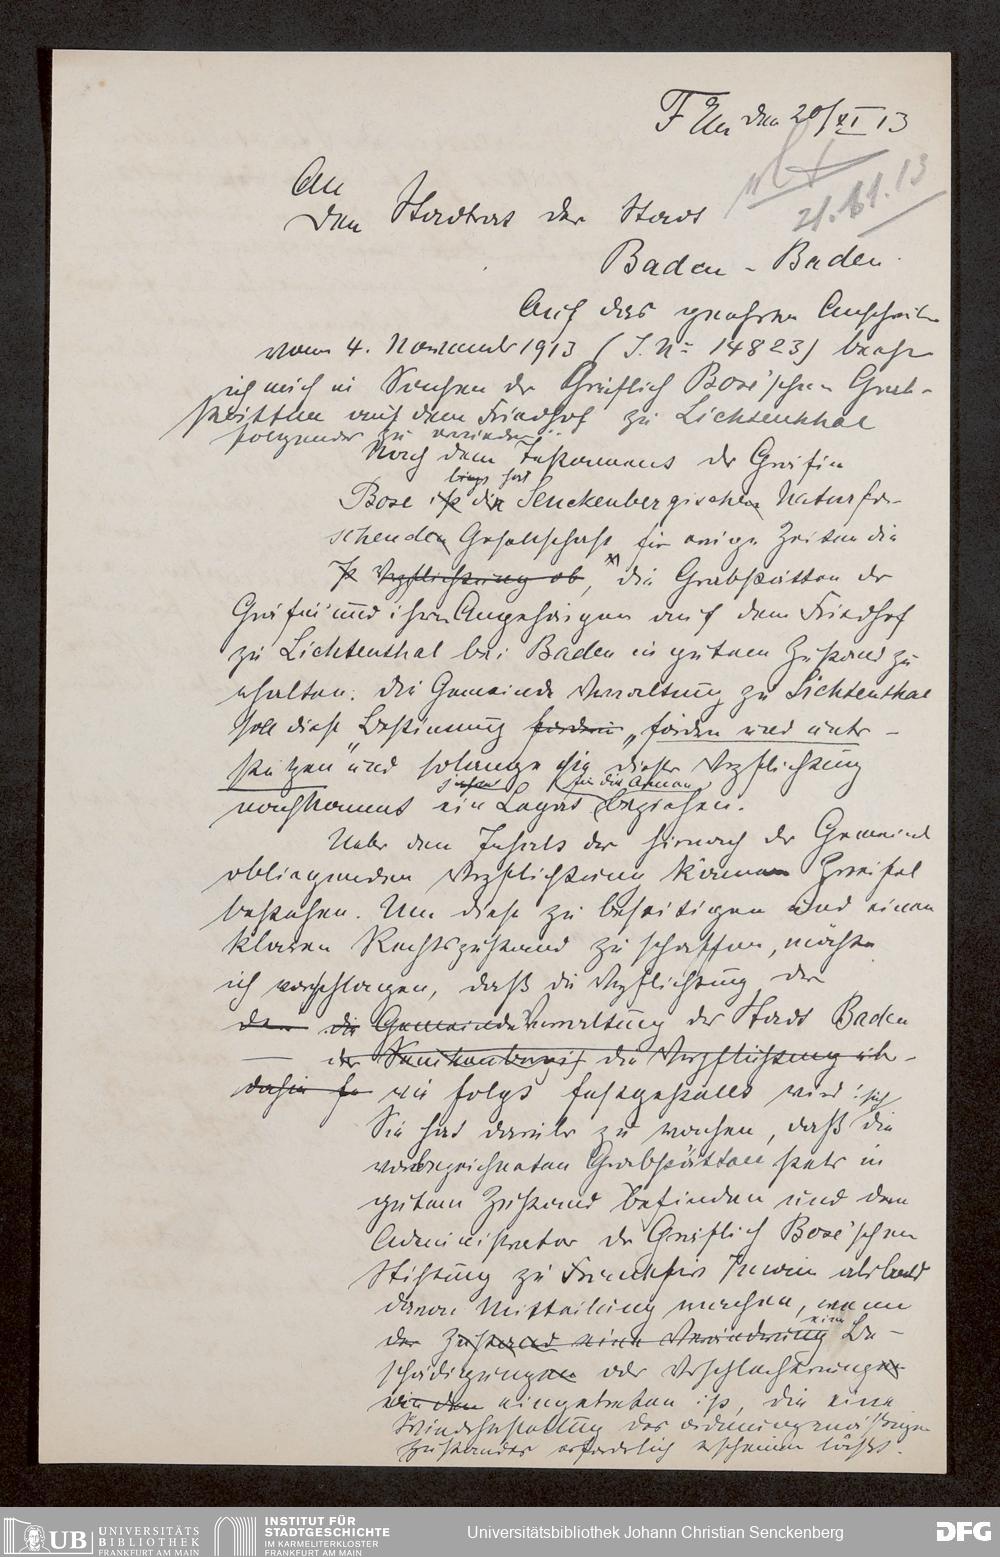 F a/M den 20/XI 13
21.11.13
An
den Stadtrat der Stadt
Baden-Baden.
Auf das geehrte Anschreiben
vom 4. November 1913 (J. No 14823) beehre
ich mich in Sachen der Gräflich Bose'schen Grab-
stätten auf dem Friedhof zu Lichtenthal
folgendes zu erwidern:
Nach dem Testament der Gräfin
Bose ist die Senckenbergischen Naturfor-
schenden Gesellschaft für ewige Zeiten die
Verpflichtung ob, die Grabstätten der
Gräfin und ihrer Angehörigen auf dem Friedhof
zu Lichtenthal bei Baden in gutem Zustand zu
erhalten. Die Gemeinde Verwaltung zu Lichtenthal
soll diese Bestimmung fordern „fördern und unter-
stützen" und solange sie dieser Verpflichtung
nachkommt ein Legat für die Armen beziehen.
Ueber den Inhalt der hiernach der Gemeinde
obliegenden Verpflichtung können Zweifel
bestehen. Um diese zu beseitigen und einen
klaren Rechtszustand zu schaffen, möchte
ich vorschlagen, daß die Verpflichtung der
den die Gemeinde Verwaltung der Stadt Baden
der die Verpflichtung über-
dahin wie folgt festgestellt wird:
Sie hat darüber zu wachen, daß sich die
vorbezeichneten Grabstätten stets in
gutem Zustand befinden und dem
Administrator der Gräflich Bose'schen
Stiftung zu Frankfurt a/Main alsbald
davon Mitteilung machen, wenn
der Zustand eine Veränderung eine Be-
schädigungen oder Verschlechterungen
eingetreten ist, die eine
Wiederherstellung des ordnungsmäßigen
Zustandes erforderlich erscheinen läßt.
UB UNIVERSITÄTS
BIBLIOTHEK
FRANKFURT AM MAIN
INSTITUT FÜR
STADTGESCHICHTE
IM KARMELITERKLOSTER
FRANKFURT AM MAIN
Universitätsbibliothek Johann Christian Senckenberg
DFG